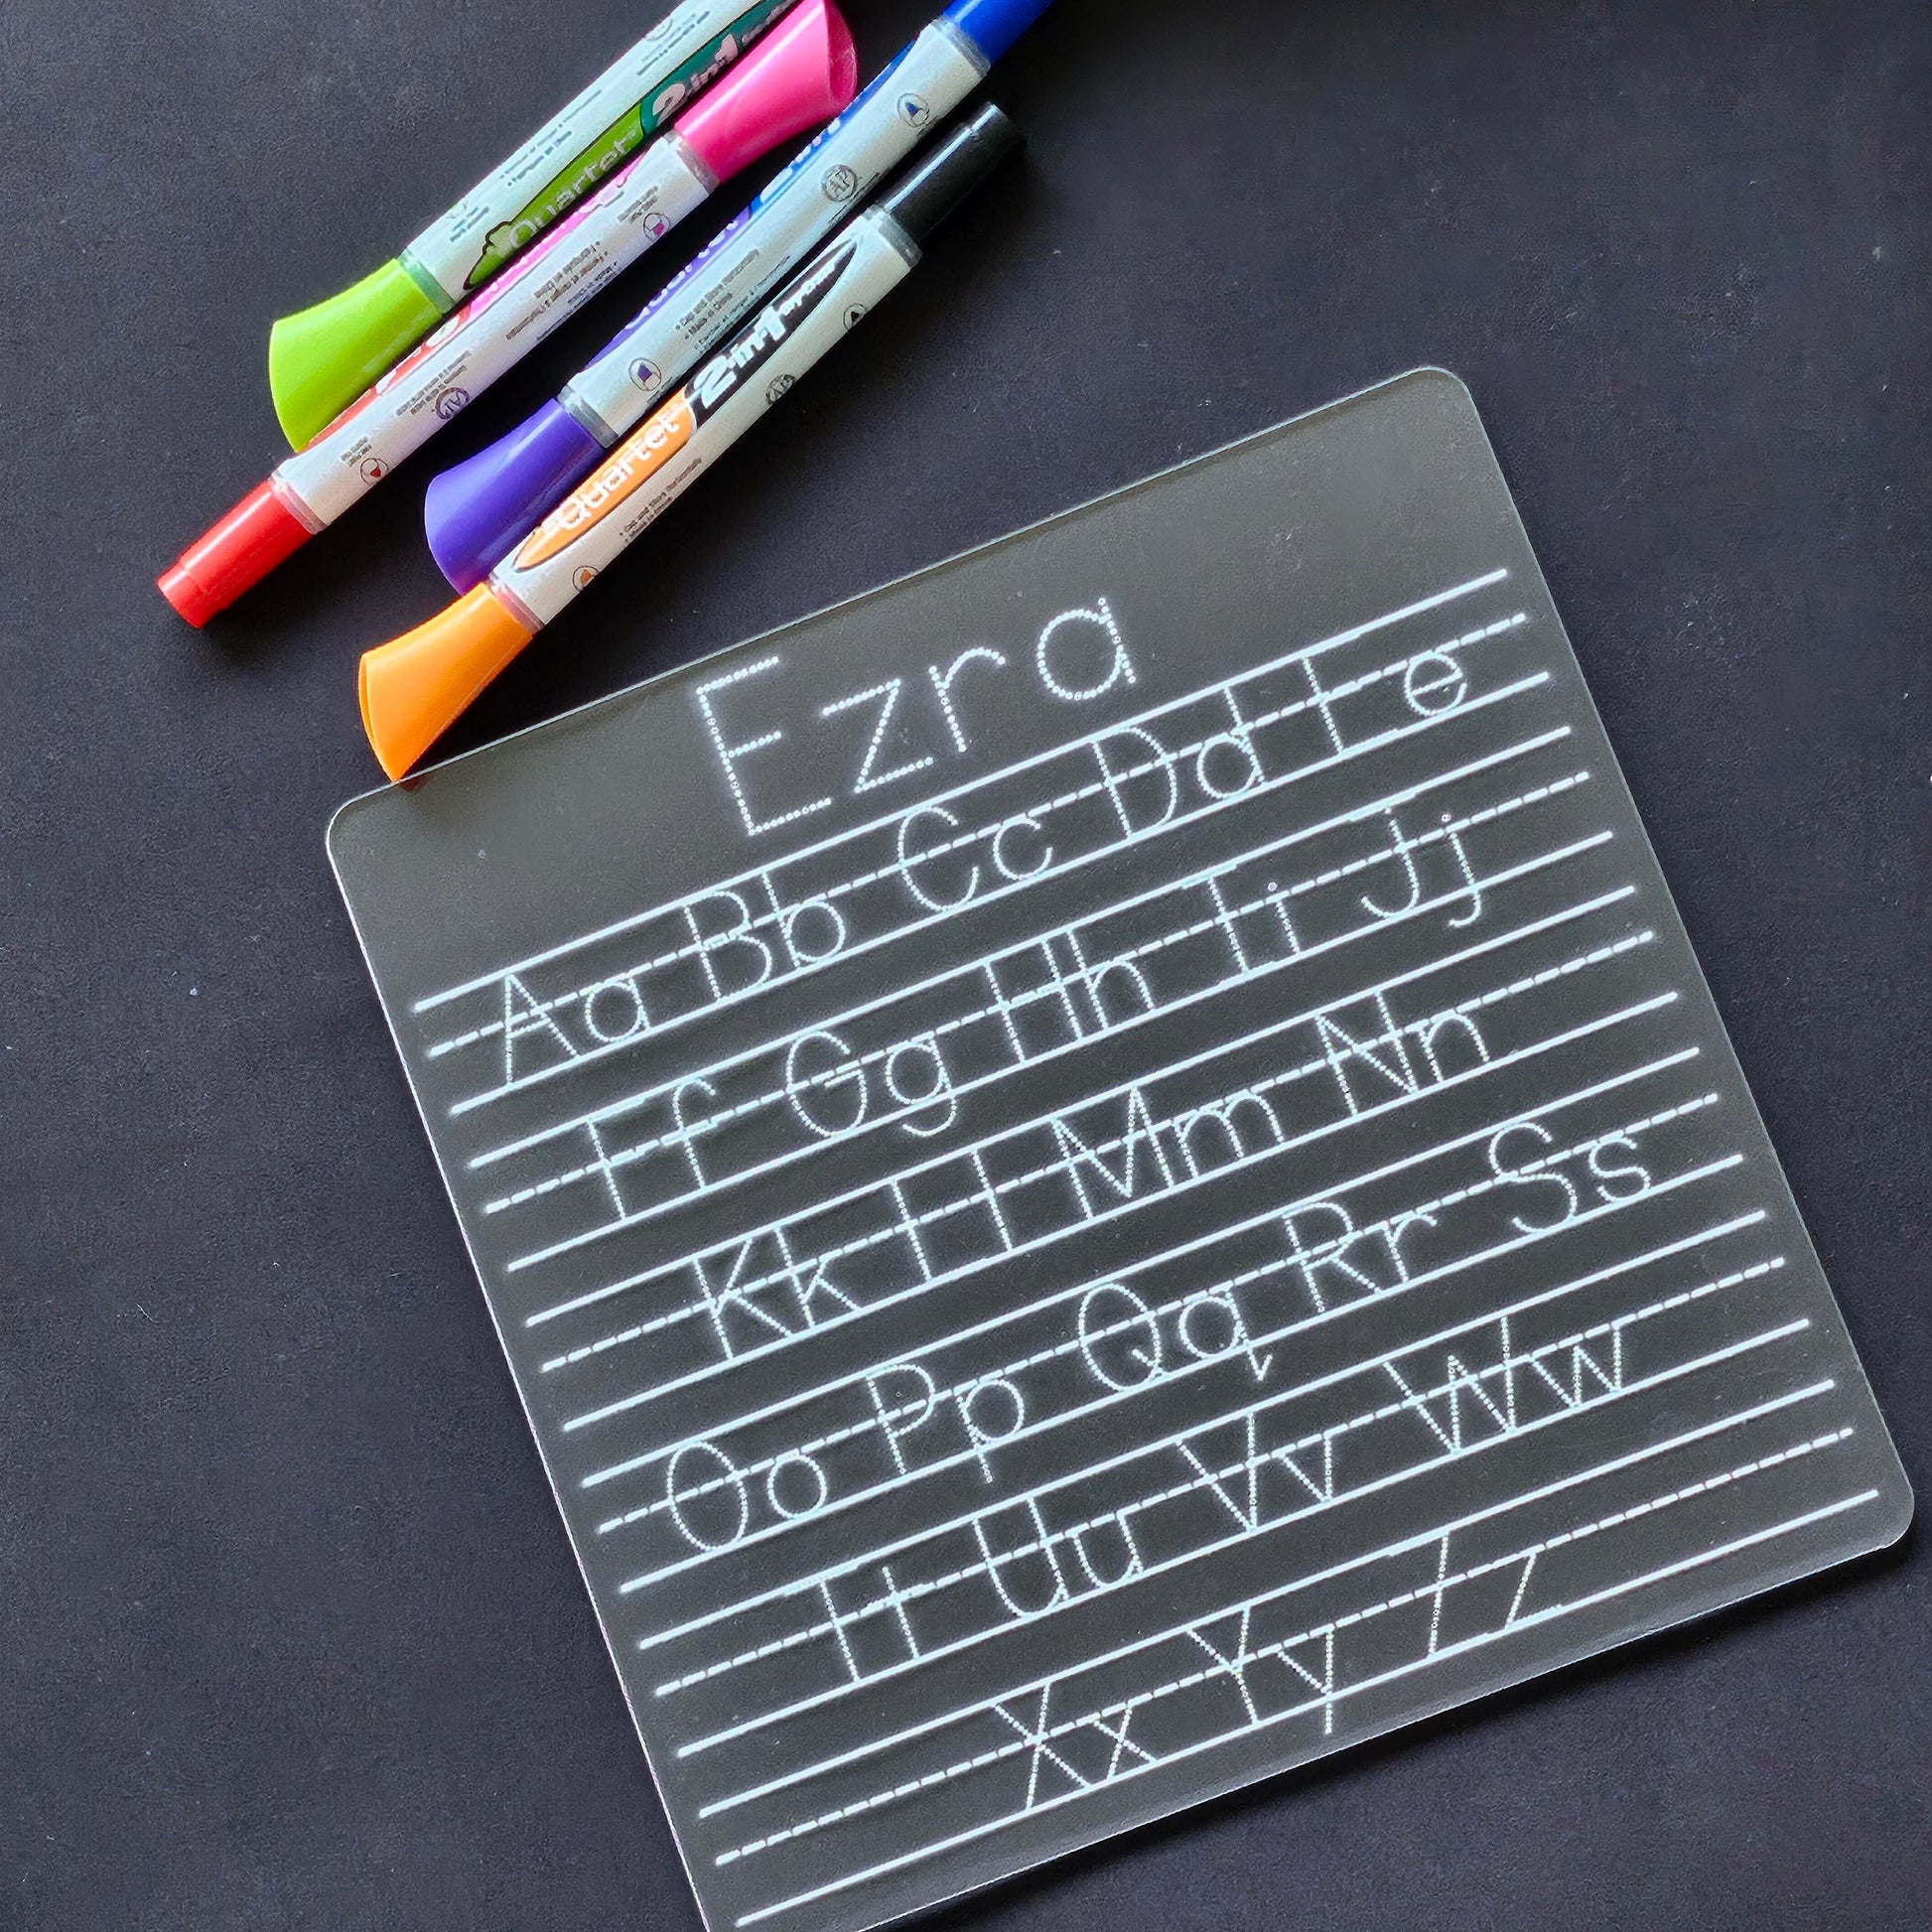 Quartet
2-in-1
Quartet
2-in-1
Ezra
Aa Bb Cc Dd Ee
Ff Gg Hh Ii Jj
Kk Ll Mm Nn
Oo Pp Qq Rr Ss
Tt Uu Vv Ww
Xx Yy Zz